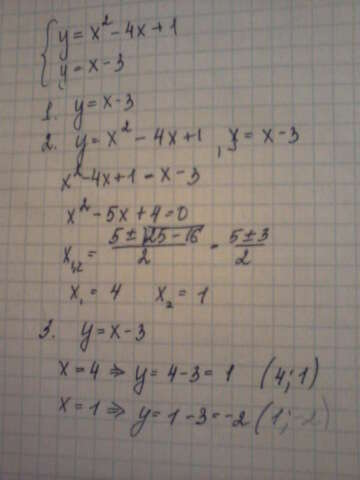 { y = x² - 4x + 1
y = x - 3
1. y = x - 3
2. y = x² - 4x + 1 , y = x - 3
x² - 4x + 1 = x - 3
x² - 5x + 4 = 0
x₁,₂ = (5 ± √(25 - 16))/2 = (5 ± 3)/2
x₁ = 4 x₂ = 1
3. y = x - 3
x = 4 ⇒ y = 4 - 3 = 1 (4; 1)
x = 1 ⇒ y = 1 - 3 = -2 (1; -2)